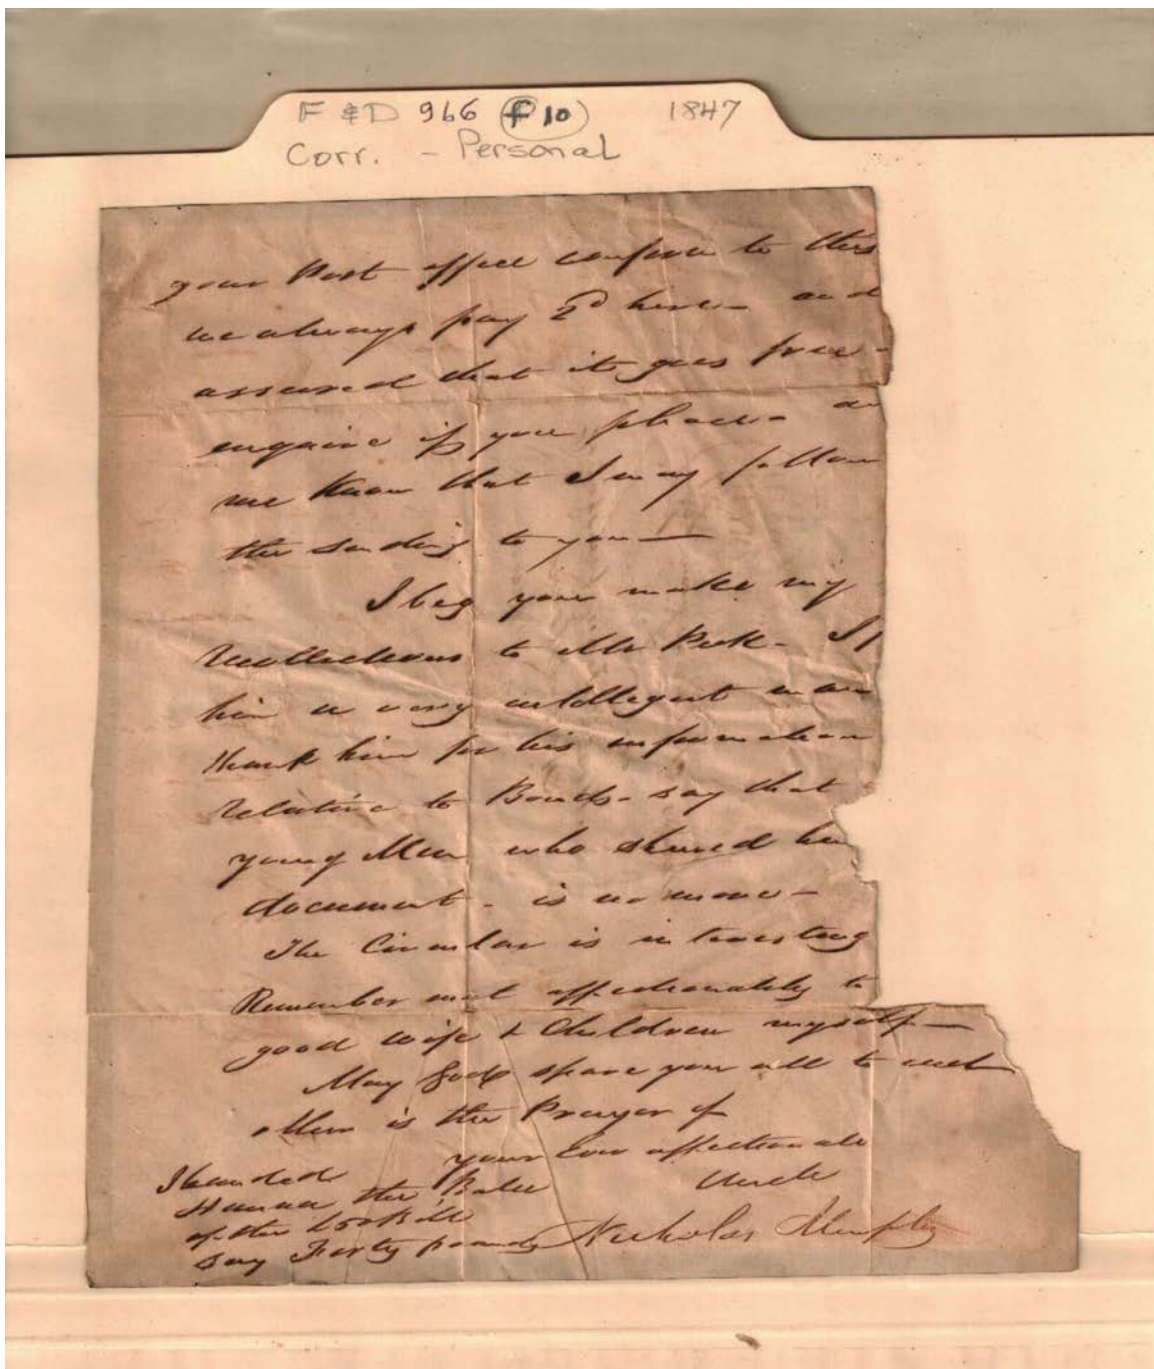 F & D 966 f 10 1847
Corr. - Personal
your Post office conform to this
we always pay 2d here - and
assured that it goes free -
enquire if you please -
me Know that I may follow
the sending to you —
I beg your make my
recollections to Mr Peck -
him a very intelligent man
thank him for his information
relative to Bonds - say that
young Man who shewed him
document - is no more -
The Circular is interesting
Remember me affectionately to
good wife & Children myself —
May God spare you all to each
other is the Prayer of
your affectionate
Uncle
Nicholas Murphy
I handed
Hanna the
of the Bill
say Forty pounds